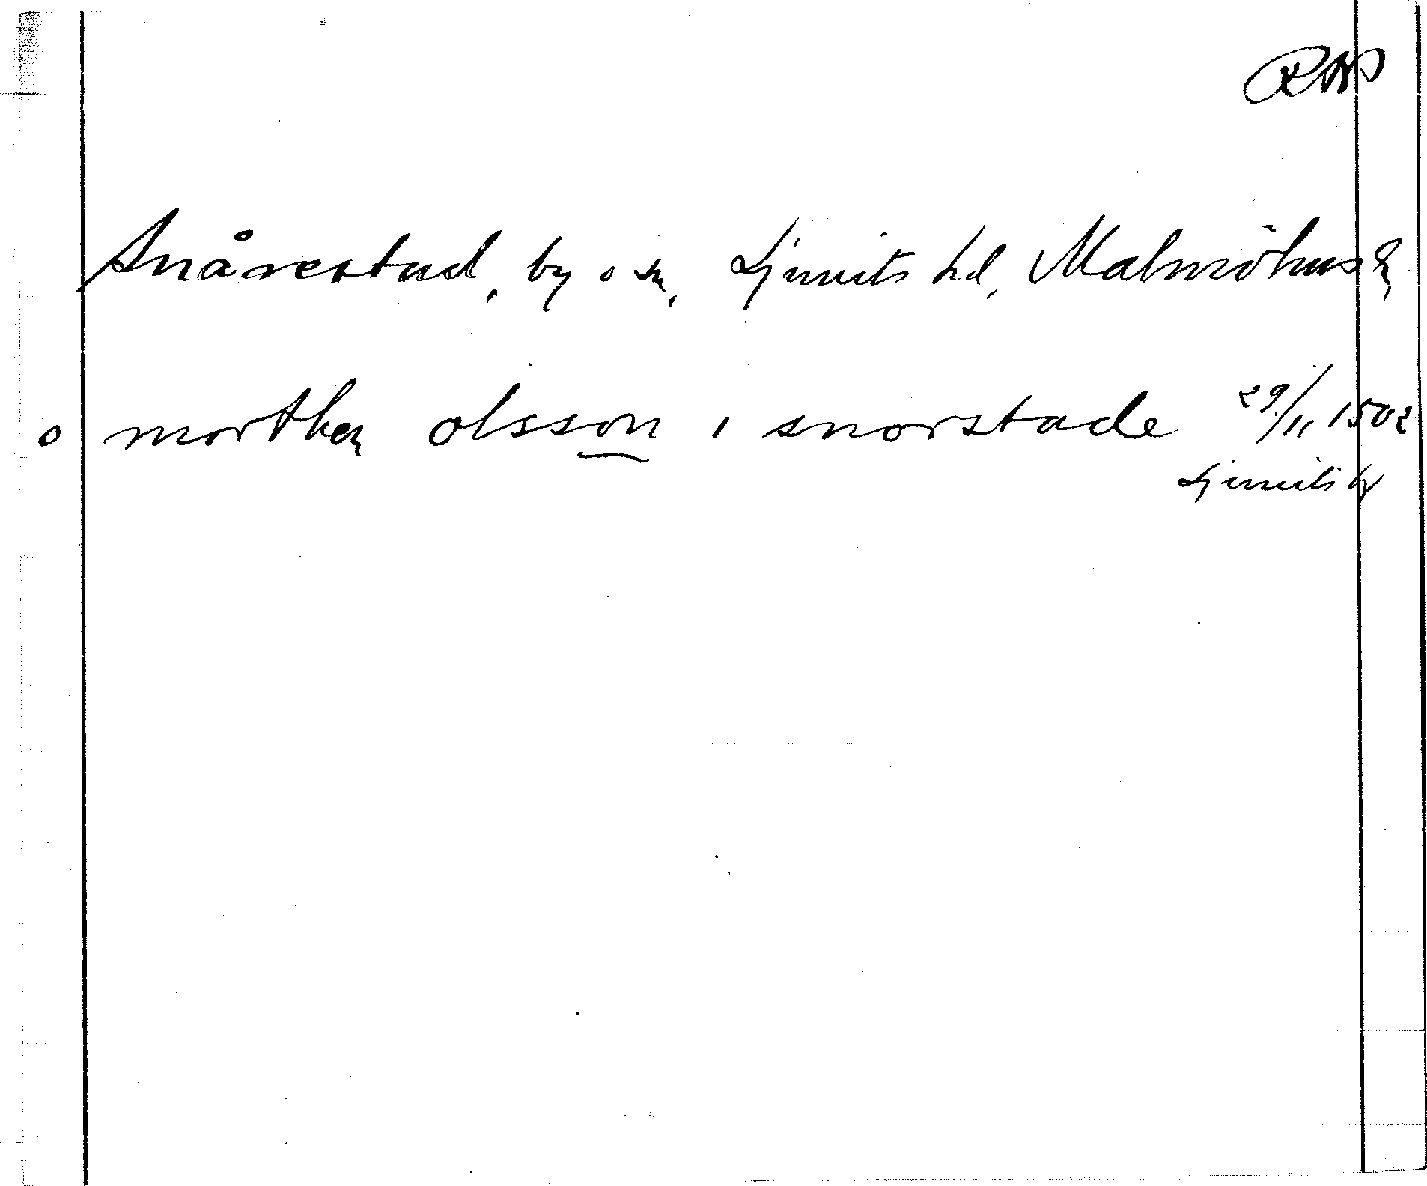 Snårestad, by o sn, Ljunits hd, Malmöhus l
o morthen olsson i snorstade 29/11 1502
Ljunits